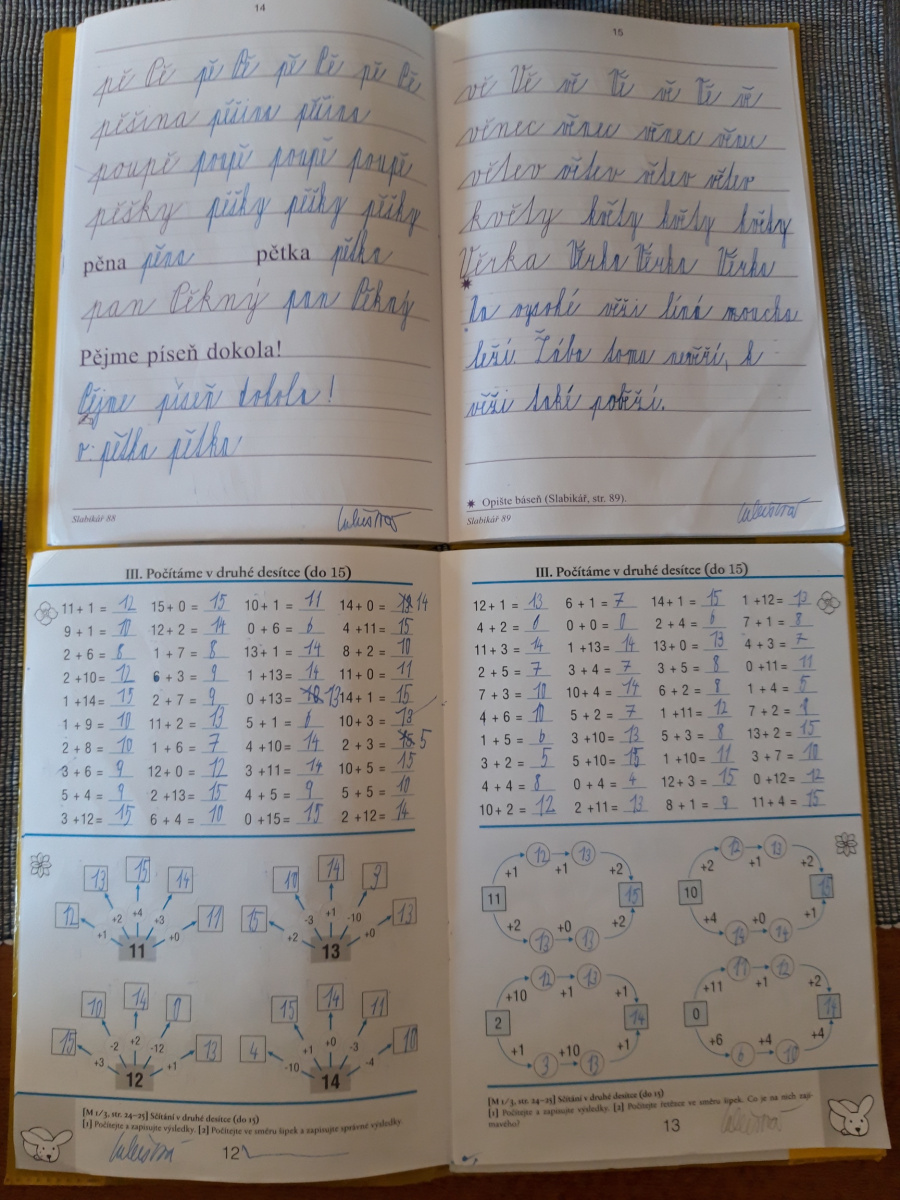 14
pě Pě pě Pě pě Pě pě Pě
pěšina pěšina pěšina
poupě poupě poupě poupě
pěšky pěšky pěšky pěšky
pěna pěna pětka pětka
pan Pěkný pan Pěkný
Pějme píseň dokola!
Pějme píseň dokola!
pětka pětka
Slabikář 88
15
vě Vě vě Vě vě Vě vě
věnec věnec věnec věnec
větev větev větev větev
květy květy květy květy
Věrka Věrka Věrka Věrka
Na vysoké věži líná moucha
leží. Žába tomu nevěří, k
věži také poběží.
Opište báseň (Slabikář, str. 89).
Slabikář 89
III. Počítáme v druhé desítce (do 15)
11 + 1 = 12 15 + 0 = 15 10 + 1 = 11 14 + 0 = 14
9 + 1 = 10 12 + 2 = 14 0 + 6 = 6 4 + 11 = 15
2 + 6 = 8 1 + 7 = 8 13 + 1 = 14 8 + 2 = 10
2 + 10 = 12 6 + 3 = 9 1 + 13 = 14 11 + 0 = 11
1 + 14 = 15 2 + 7 = 9 0 + 13 = 13 14 + 1 = 15
1 + 9 = 10 11 + 2 = 13 5 + 1 = 6 10 + 3 = 13
2 + 8 = 10 1 + 6 = 7 4 + 10 = 14 2 + 3 = 5
3 + 6 = 9 12 + 0 = 12 3 + 11 = 14 10 + 5 = 15
5 + 4 = 9 2 + 13 = 15 4 + 5 = 9 5 + 5 = 10
3 + 12 = 15 6 + 4 = 10 0 + 15 = 15 2 + 12 = 14
12 13 15 14 11
+1 +2 +4 +3 +0
11
15 10 14 3 13
+2 -3 +1 -10 +0
13
15 10 14 0 13
+3 -2 +2 -12 +1
12
4 15 14 11 10
-10 +1 +0 -3 -4
14
[M 1/3, str. 24–25] Sčítání v druhé desítce (do 15)
[1] Počítejte a zapisujte výsledky. [2] Počítejte ve směru šipek a zapisujte správné výsledky.
12
III. Počítáme v druhé desítce (do 15)
12 + 1 = 13 6 + 1 = 7 14 + 1 = 15 1 + 12 = 13
4 + 2 = 6 0 + 0 = 0 2 + 4 = 6 7 + 1 = 8
11 + 3 = 14 1 + 13 = 14 13 + 0 = 13 4 + 3 = 7
2 + 5 = 7 3 + 4 = 7 3 + 5 = 8 0 + 11 = 11
7 + 3 = 10 10 + 4 = 14 6 + 2 = 8 1 + 4 = 5
4 + 6 = 10 5 + 2 = 7 1 + 11 = 12 7 + 2 = 9
1 + 5 = 6 3 + 10 = 13 5 + 3 = 8 13 + 2 = 15
3 + 2 = 5 5 + 10 = 15 1 + 10 = 11 3 + 7 = 10
4 + 4 = 8 0 + 4 = 4 12 + 3 = 15 0 + 12 = 12
10 + 2 = 12 2 + 11 = 13 8 + 1 = 9 11 + 4 = 15
12 13
+1 +1 +2
11 15
+2 +0 +2
13 13
12 13
+2 +1 +2
10 15
+4 +0 +1
14 14
12 13
+10 +1 +1
2 14
+1 +10 +1
3 13
11 12
+11 +1 +2
0 14
+6 +4 +4
6 10
[M 1/3, str. 24–25] Sčítání v druhé desítce (do 15)
[1] Počítejte a zapisujte výsledky. [2] Počítejte řetězce ve směru šipek. Co je na nich zají-
mavého?
13